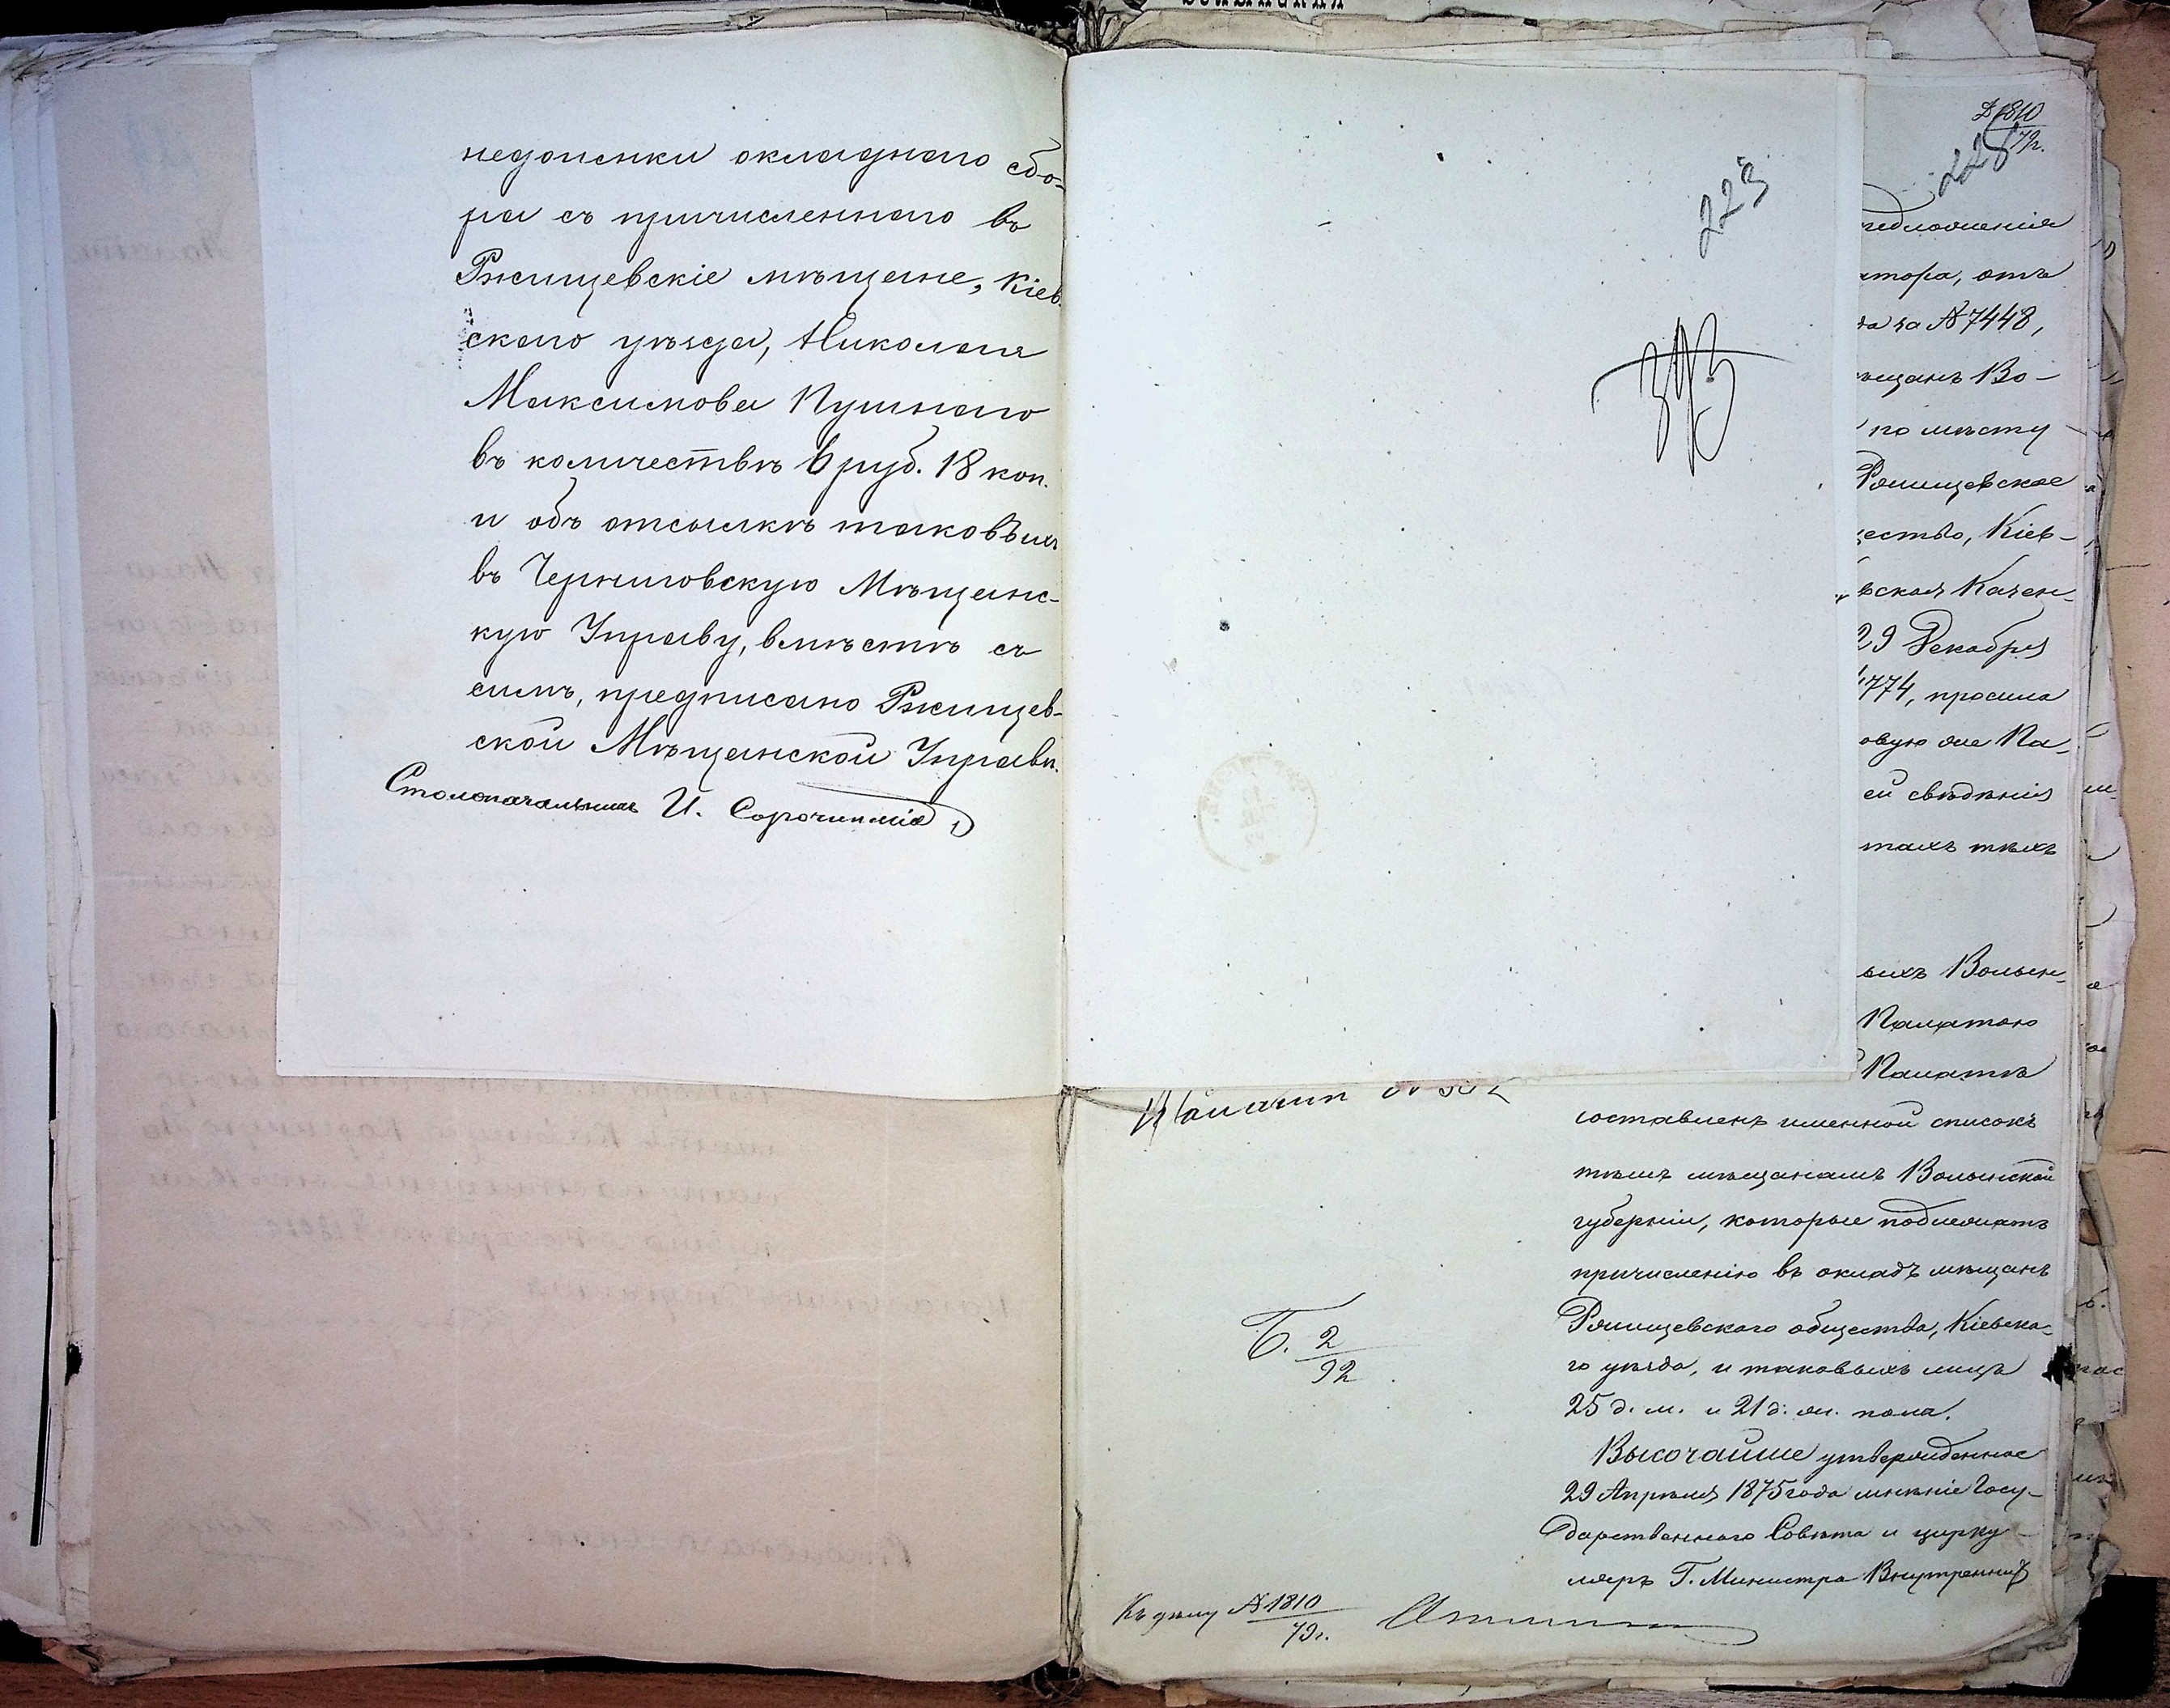 недоимки окладнаго сбо-
ра съ причисленнаго въ
Ржищевскіе мѣщане, Кіев-
скаго уѣзда, Николая
Максимова Пушнаго
въ количествѣ 6 руб. 18 коп.
и объ отсылкѣ таковыхъ
въ Черниговскую Мѣщанс-
кую Управу, вмѣстѣ съ
симъ, предписано Ржищев-
ской Мѣщанской Управѣ.
Столоначальникъ И.
223
№ 1810
79г.
228
редложенія
атора, отъ
да за № 7448,
ѣщанъ Во-
по мѣсту
Ржищевское
ество, Кіев-
вская Казен-
29 Декабря
1774, просила
овую же Па-
ей свѣдѣнія
тахъ тѣхъ
ыхъ Волын-
Палатою
Палатѣ
составленъ именной списокъ
тѣмъ мѣщанамъ Волынской
губерніи, которые подлежатъ
причисленію въ окладъ мѣщанъ
Ржищевскаго общества, Кіевска-
го уѣзда, и таковыхъ лицъ
25 д. м. и 21 д. ж. пола.
Б. 2
92
Высочайше утвержденное
29 Апрѣля 1875 года мнѣніе Госу-
дарственнаго Совѣта и цирку-
ляръ Г. Министра Внутреннихъ
Къ дѣлу № 1810
79г.